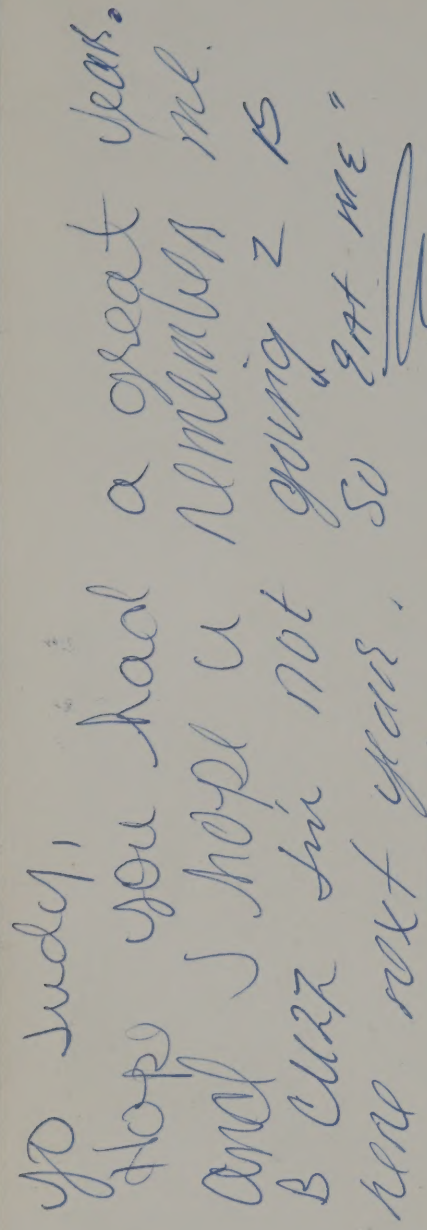 Yo Judy,
Hope you had a great year.
and I hope u remember me.
B CUZZ I'm not going 2 B
here next year. So "EAT ME"